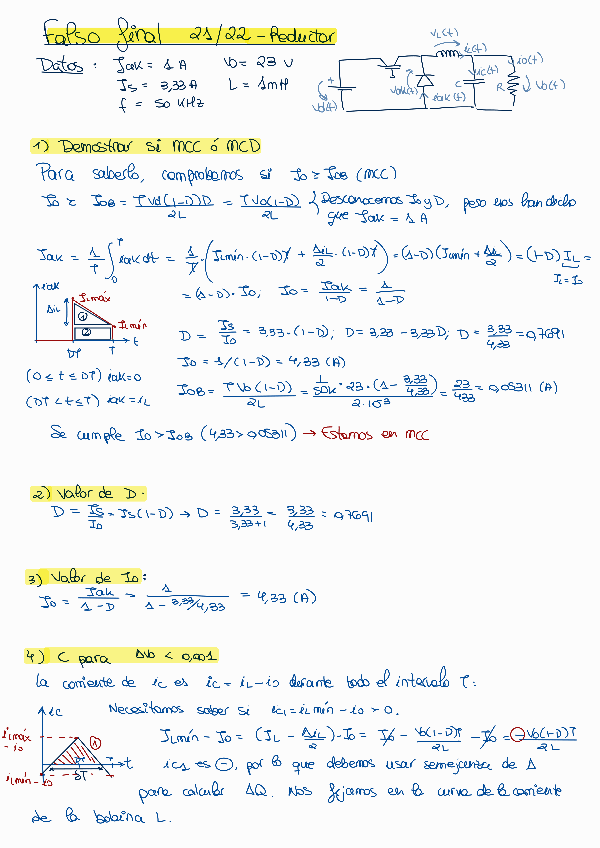 Falso final 21/22 - Reductor
Datos: Iak = 1 A   Vo = 23 V
Is = 3,33 A   L = 1mH
f = 50 KHz
VL(t)
iL(t)
io(t)
Vd(t)
Vak(t)
iak(t)
C
R
Vo(t)
1) Demostrar si MCC ó MCD
Para saberlo, comprobamos si Io ≥ IOB (MCC)
Io ≥ IOB = TVd(1-D)D / 2L = TVo(1-D) / 2L { Desconocemos Io y D, pero nos han dicho
que Iak = 1 A
Iak = 1/T ∫₀ᵀ iak dt = 1/T · (ILmín · (1-D)T + ΔiL/2 · (1-D)T) = (1-D)(ILmín + ΔiL/2) = (1-D) IL =
IL = Io
= (1-D) · Io, Io = Iak/1-D = 1/1-D
iak
ΔiL
ILmáx
ILmín
1
2
DT   T   t
D = Is/Io = 3,33 · (1-D); D = 3,33 - 3,33D; D = 3,33/4,33 = 0,7691
Io = 1/(1-D) = 4,33 (A)
(0 ≤ t ≤ DT) iak=0
(DT < t ≤ T) iak = iL
IOB = TVo(1-D) / 2L = 1/50K · 23 · (1 - 3,33/4,33) / 2·10⁻³ = 23/433 = 0,05311 (A)
Se cumple Io > IOB (4,33 > 0,05311) → Estamos en MCC
2) Valor de D.
D = Is/Io = Is(1-D) → D = 3,33/3,33+1 = 3,33/4,33 = 0,7691
3) Valor de Io:
Io = Iak/1-D = 1/1-3,33/4,33 = 4,33 (A)
4) C para ΔVo < 0,001
La corriente de ic es ic = iL - io durante todo el intervalo T.
Necesitamos saber si ic1 = iLmín - io > 0.
ic
iLmáx - io
iLmín - Io
1
DT
T
t
ILmín - Io = (IL - ΔiL/2) - Io = Io - Vo(1-D)T/2L - Io = - Vo(1-D)T/2L
ic1 es ⊖, por lo que debemos usar semejanza de Δ
para calcular ΔQ. Nos fijamos en la curva de la corriente
de la bobina L.